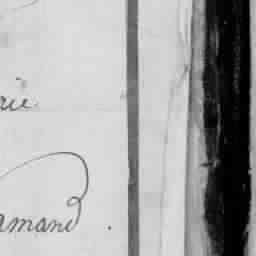 rie
amand.